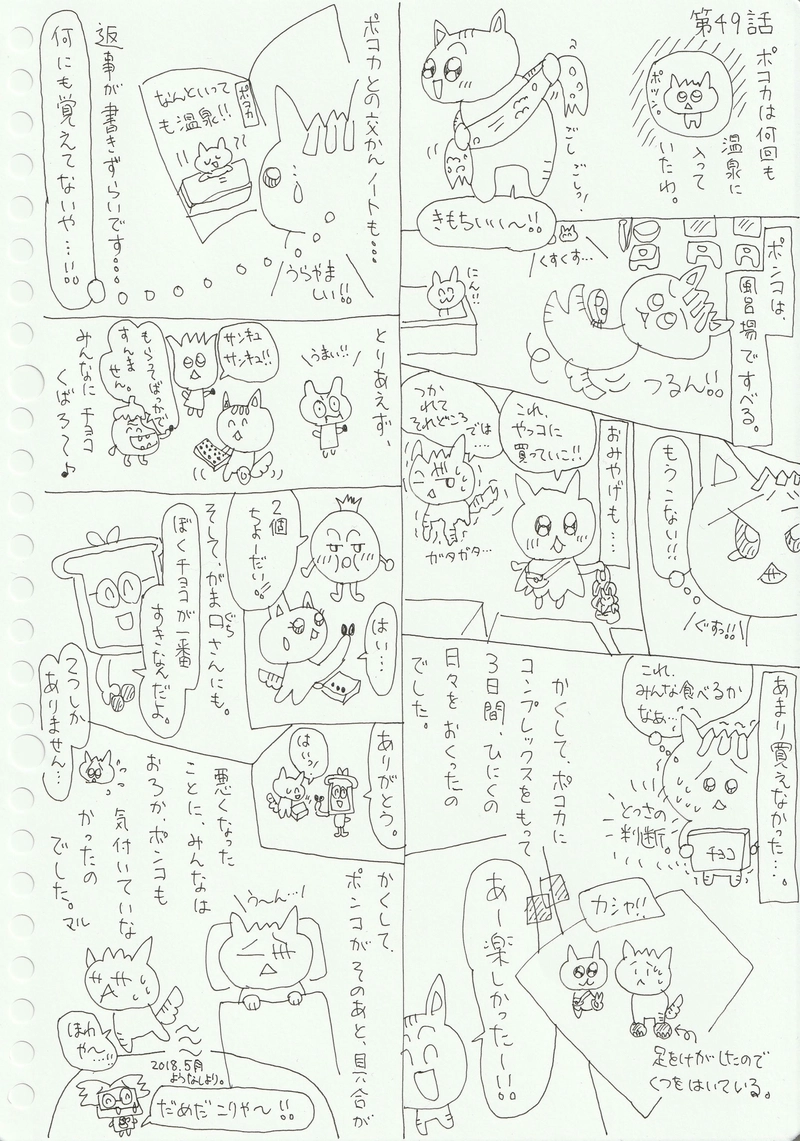 第49話
ポコカは何回も
温泉に
入って
いたわ。
ポツン。
ごし
ごしっ!
きもちいい〜!!
ポンコは、
風呂場ですべる。
くすくす…
にん!!
つるん!!
もうこない!!
ぐすっ!!
おみやげも…
これ、
ヤッコに
買っていこ!!
つかれて
それどころ
では…
ガタガタ…
あまり買えなかった…。
これ、
みんな食べるか
なぁ…
とっさの
判断。
チョコ
かくして、ポコカに
コンプレックスをもって
3日間、ひにくの
日々をおくったの
でした。
カシャ!!
足をけがしたので
くつをはいている。
あー楽しかったー!!
ポコカとの交かんノートも…
ポコカ
なんといって
も温泉!!
うらやま
しい!!
返事が書きずらいです…
何にも覚えてないや…!!
とりあえず、
みんなにチョコ
くばろ〜♪
うまい!!
サンキュ
サンキュ!!
もらってばっかで
すんま
せん。
2個
ちょーだい!!
はい…
そして、がま口さんにも。
ぐち
ぼくチョコが一番
すきなんだよ。
2つしか
ありません…
ありがとう。
はいっ!
かくして、
ポンコがそのあと、具合が
悪くなった
ことに、みんなは
おろか、ポンコも
気付いていな
かったの
でした。マル
う〜ん…!
ほわ
や〜…!!
2018.5月
ようなしより。
だめだこりゃ〜!!